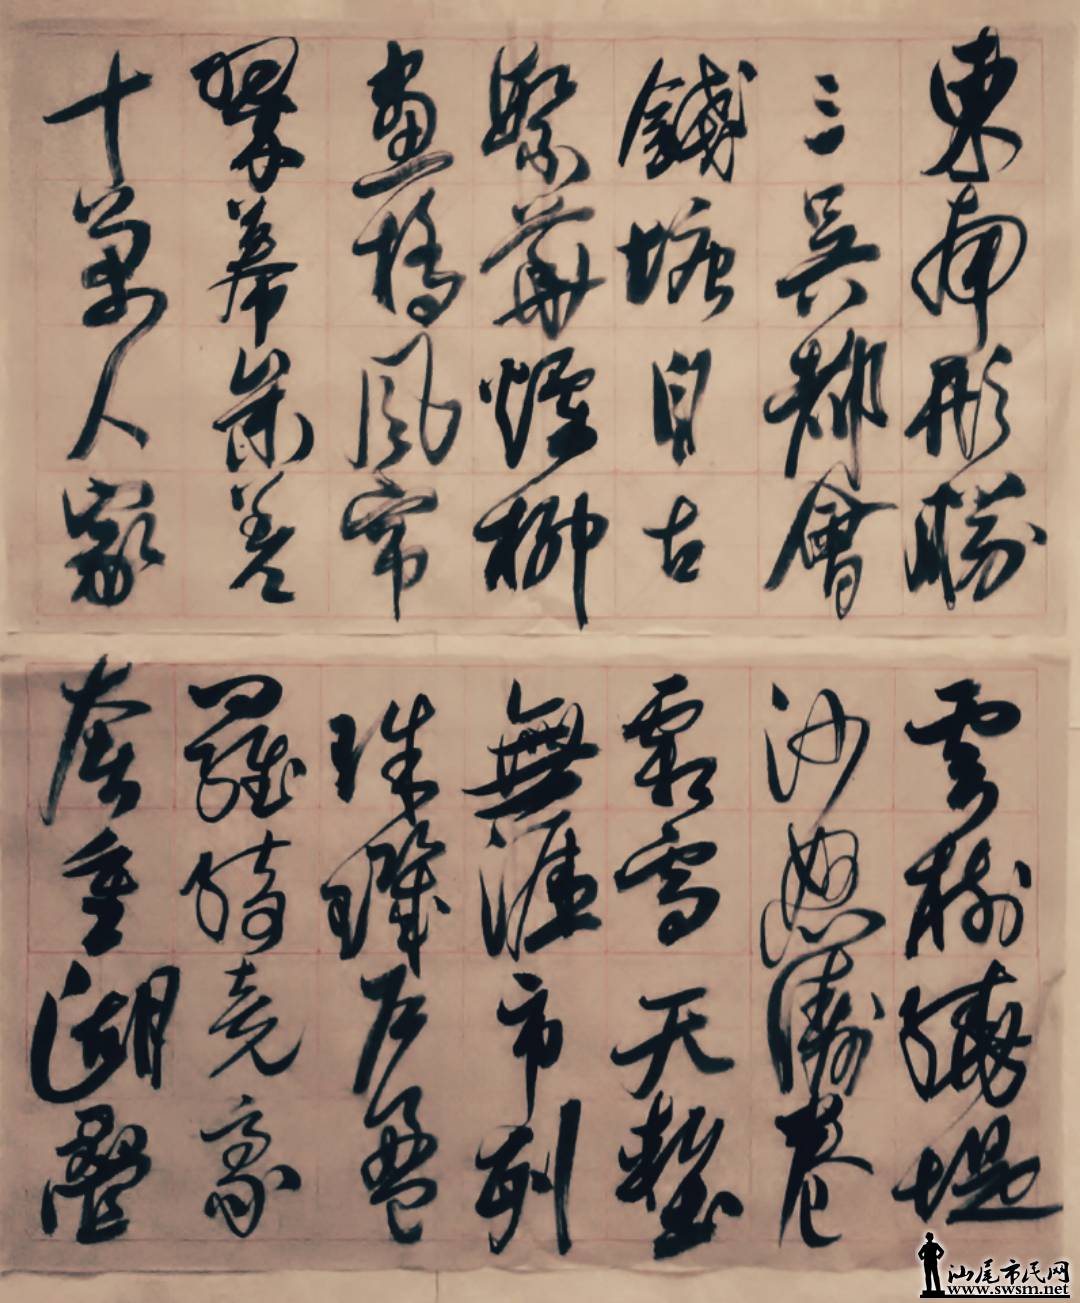 東南形勝
三吳都會
錢塘自古
繁華煙柳
畫橋風帘
翠幕參差
十萬人家
雲樹繞堤
沙怒濤卷
霜雪天塹
無涯市列
珠璣户盈
羅綺競豪
奢重湖疊
汕尾市民网
www.swsm.net